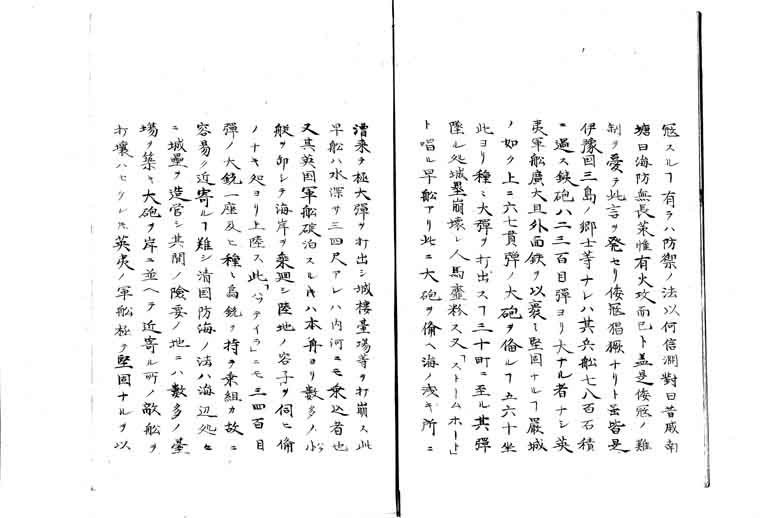 冦スルヿ有ラハ防禦ノ法以何信淵對曰昔戚南
塘曰海防無長策惟有火攻而已ト盖是倭冦ノ難
制ヲ憂テ此言ヲ発セリ倭冦猖獗ナリト𧈧皆是
伊豫国三島ノ郷士等ナレハ其兵船七八百石積
ニ過ス鉄砲ハ二三百目彈ヨリ大ナル者ナシ英
夷軍船廣大且外面鉄ヲ以裹ミ堅固ナルヿ嚴城
ノ如ク上ニ六七貫彈ノ大砲ヲ備ルヿ五六十坐
此ヨリ種〻大彈ヲ打出スヿ三十町ニ至ル其彈
墜ル処城塁崩壊シ人馬韲粉ス又「ストームホート」
ト唱ル早船アリ此ニ大砲ヲ備ヘ海ノ浅キ所ニ
漕来テ極大彈ヲ打出シ城樓臺場等ヲ打崩ス此
早船ハ水深サ三四尺アレハ内河ニモ乗込者也
又其英国軍船破泊スル片ハ本舟ヨリ数多ノ小
艇ヲ卸シテ海岸ヲ乗廻シ陸地ノ容子ヲ伺ヒ備
ノナキ処ヨリ上陸ス此「ハツテイラ」ニモ三四百目
彈ノ大銃一座及ヒ種〻鳥銃ヲ持テ乗組カ故ニ
容易ク近寄ルヿ難シ清国防海ノ法ハ海辺処〻
ニ城壘ヲ造営シ其間ノ險要ノ地ニハ数多ノ臺
場ヲ築キ大砲ヲ岸ニ並ヘテ近寄ル所ノ敵船ヲ
打壊ハセクレ𪜈英夷ノ軍船極テ堅固ナルヲ以